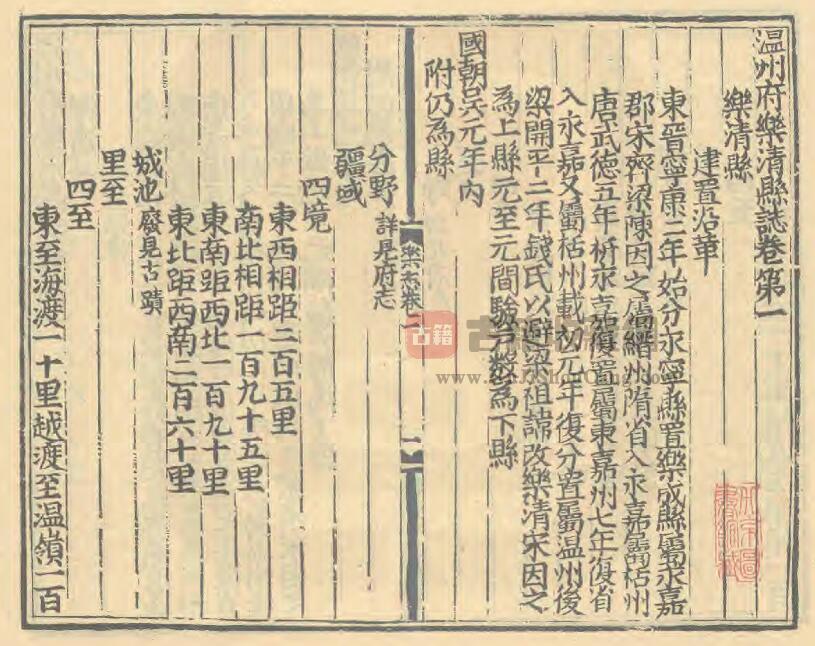 温州府樂清縣誌卷第一
樂清縣
建置沿革
東晉寧康二年始分永寧縣置樂成縣屬永嘉
郡宋齊梁陳因之屬縉州隋省入永嘉屬栝州
唐武德五年析永嘉復置屬東嘉州七年復省
入永嘉又屬栝州載初元年復分置屬温州後
梁開平二年錢氏以避梁祖諱改樂清宋因之
為上縣元至元間驗户數為下縣
國朝吴元年内
附仍為縣
樂志卷一
分野 詳見府志
疆域
四境
東西相距二百五里
南北相距一百九十五里
東南距西北一百九十里
東北距西南二百六十里
城池 廢見古蹟
里至
四至
東至海渡一十里越渡至温嶺一百
古籍